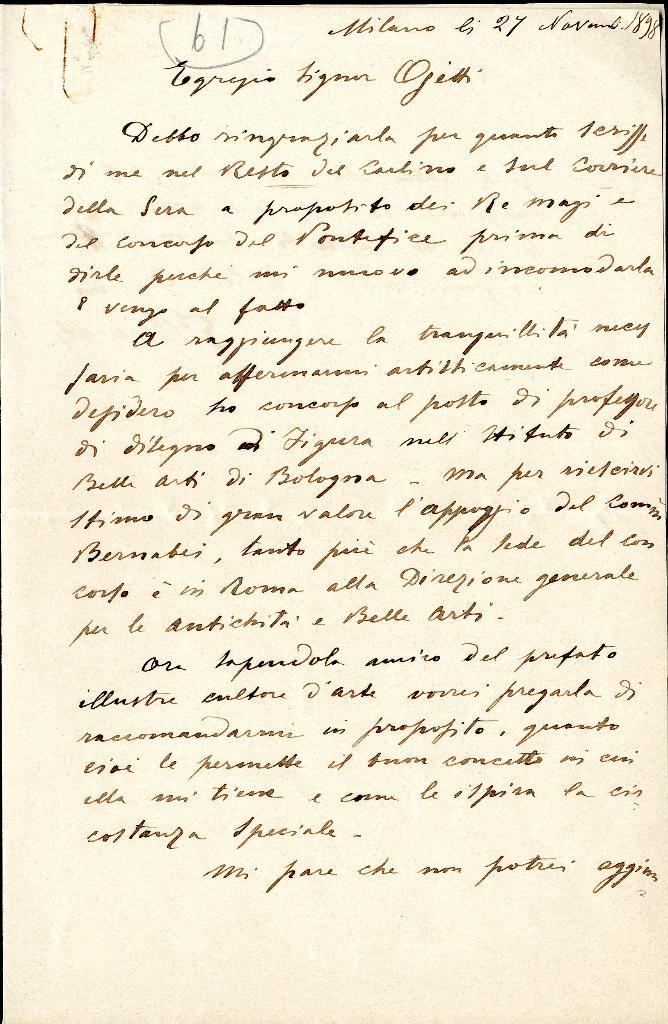 61
Milano li 27 Novemb. 1898
Egregio Signor Ojetti
Debbo ringraziarla per quanto scrisse
di me nel Resto del Carlino e sul Corriere
della Sera a proposito dei Re magi e
del concorso del Pontefice prima di
dirle perché mi muovo ad incomodarla
e vengo al fatto
A raggiungere la tranquillità neces
saria per affermarmi artisticamente come
desidero ho concorso al posto di professore
di disegno di Figura nell' Istituto di
Belle Arti di Bologna - Ma per riescirvi
stimo di gran valore l'appoggio del Comm
Bernabei, tanto più che la sede del con
corso è in Roma alla Direzione generale
per le Antichità e Belle Arti -
Ora sapendola amico del prefato
illustre cultore d'arte vorrei pregarla di
raccomandarmi in proposito, quanto
cioè le permette il buon concetto in cui
ella mi tiene e come le ispira la cir-
costanza speciale -
Mi pare che non potrei aggiun-